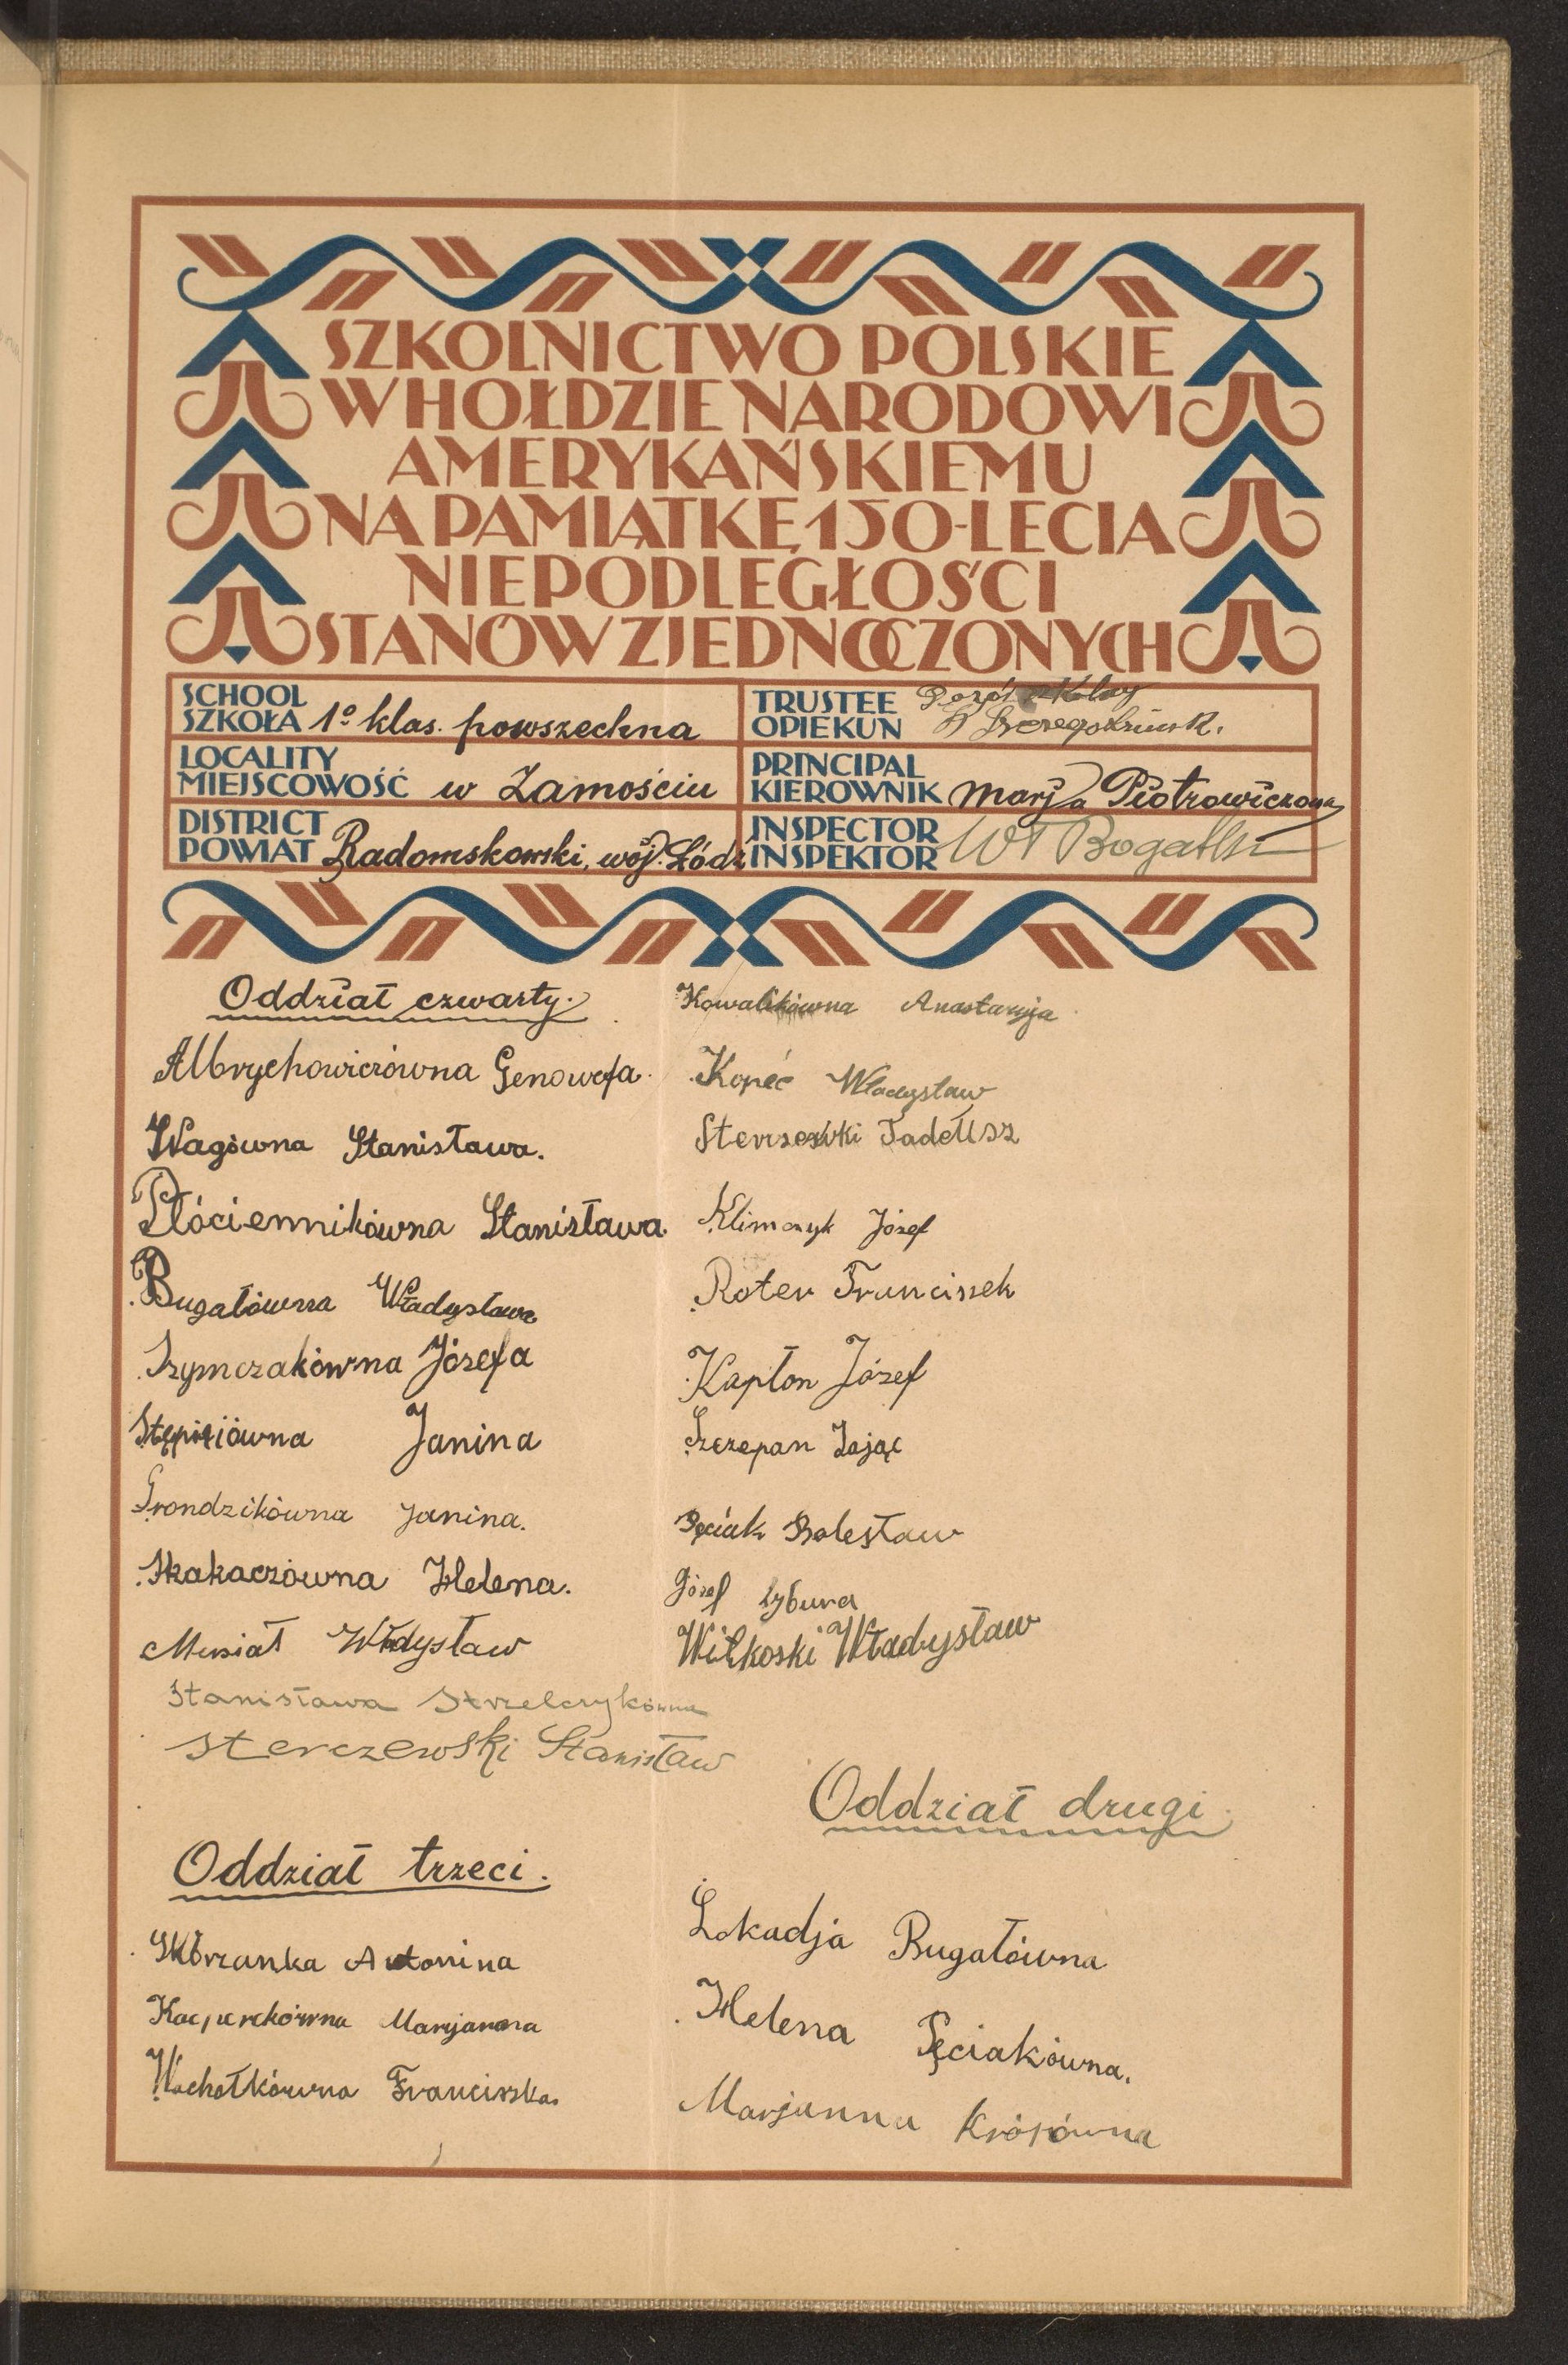 SZKOLNICTWO POLSKIE
W HOŁDZIE NARODOWI
AMERYKAŃSKIEMU
NA PAMIĄTKĘ 150-LECIA
NIEPODLEGŁOŚCI
STANÓW ZJEDNOCZONYCH
SCHOOL
SZKOŁA 1º klas. powszechna
TRUSTEE
OPIEKUN
LOCALITY
MIEJSCOWOŚĆ w Zamościu
PRINCIPAL
KIEROWNIK Marja Piotrowiczowa
DISTRICT
POWIAT Radomskowski, woj. Łódz
INSPECTOR
INSPEKTOR
Oddział czwarty.
Albrychowiczówna Genowefa.
Wagówna Stanisława.
Płóciennikówna Stanisława.
Bugałówna Władysława
Szymczakówna Józefa
Stępnióẃna Janina
Grondzikówna Janina.
Skakaczówna Helena.
Musiał Władysław
Stanisława Strzelczykówna
Sterczewski Stanisław
Oddział trzeci.
Antonina
Kacperekówna Maryjanna
Wachołkówna Franciszka.
Kowalikówna Anastazyja
Kopeć Władysław
Tadeusz
Klimczyk Józef
Roter Franciszek
Kapłon Józef
Szczepan Zając
Pęciak Bolesław
Józef Cybura
Wilkoski Władysław
Oddział drugi.
Lokadja Bugałówna
Helena Pęciakówna.
Marjanna